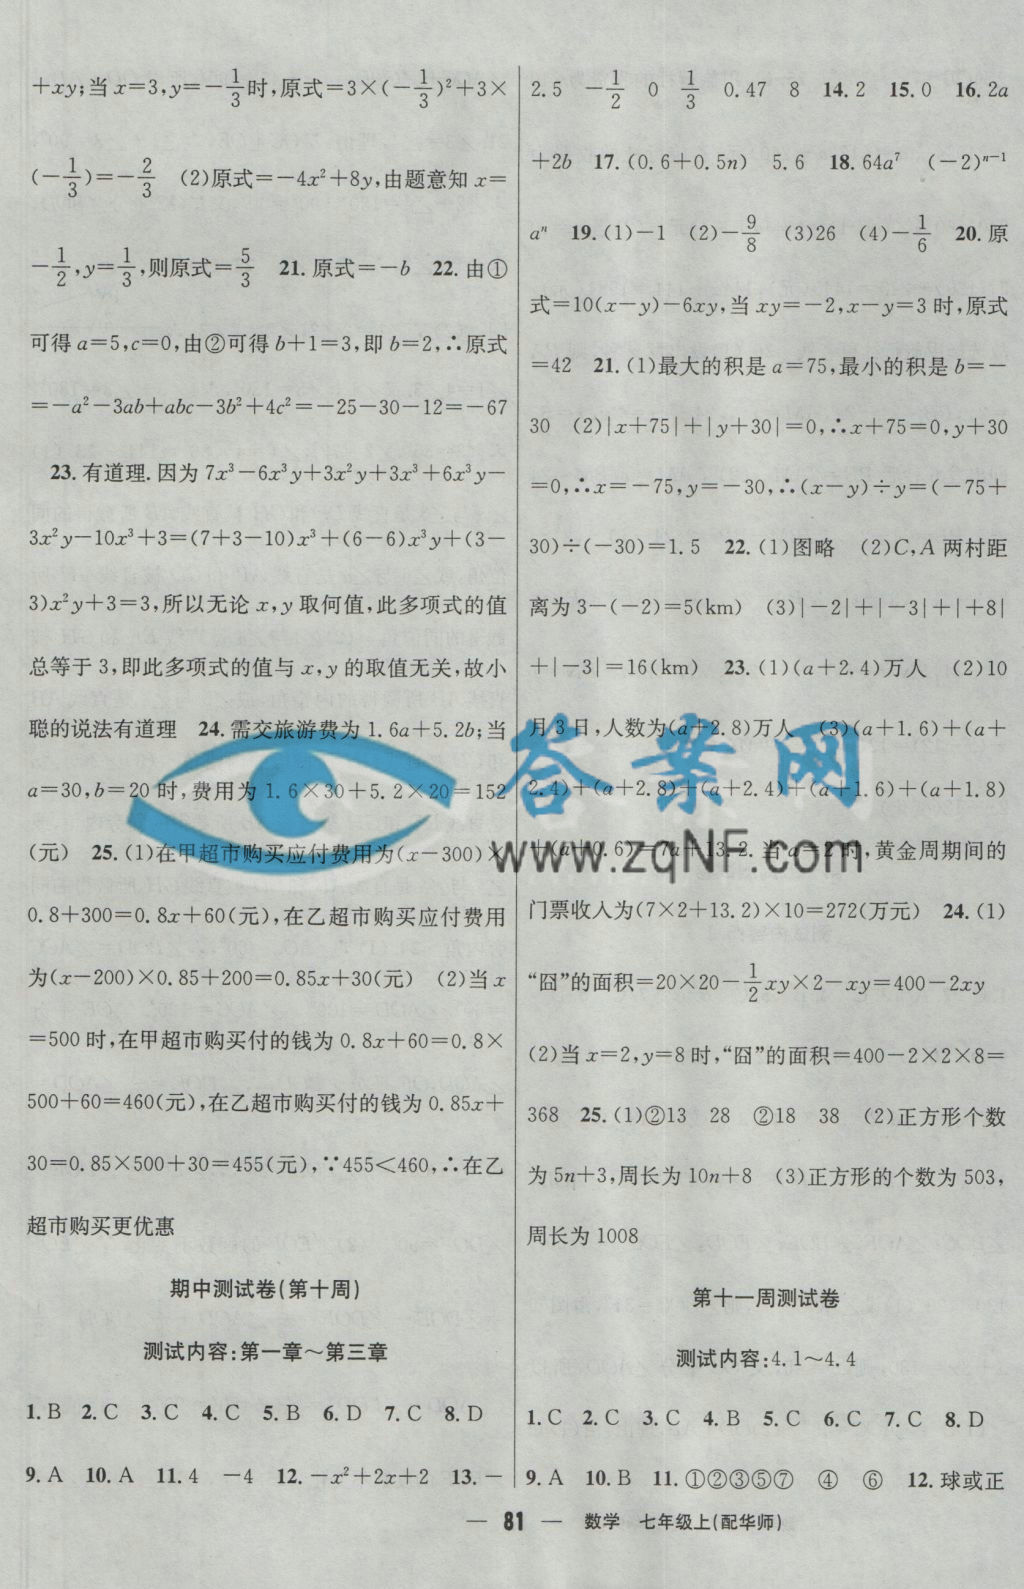 +xy;当 x=3,y=-1/3时,原式=3×(-1/3)²+3×
(-1/3)=-2/3 (2)原式=-4x²+8y,由题意知 x=
-1/2,y=1/3,则原式=5/3 21.原式=-b 22.由①
可得 a=5,c=0,由②可得 b+1=3,即 b=2,∴原式
=-a²-3ab+abc-3b²+4c²=-25-30-12=-67
23.有道理.因为 7x³-6x³y+3x²y+3x³+6x³y-
3x²y-10x³+3=(7+3-10)x³+(6-6)x³y+(3-
3)x²y+3=3,所以无论 x,y 取何值,此多项式的值
总等于 3,即此多项式的值与 x,y 的取值无关,故小
聪的说法有道理 24.需交旅游费为 1.6a+5.2b;当
a=30,b=20 时,费用为 1.6×30+5.2×20=152
(元) 25.(1)在甲超市购买应付费用为(x-300)×
0.8+300=0.8x+60(元),在乙超市购买应付费用
为(x-200)×0.85+200=0.85x+30(元) (2)当 x
=500 时,在甲超市购买付的钱为 0.8x+60=0.8×
500+60=460(元),在乙超市购买付的钱为 0.85x+
30=0.85×500+30=455(元),∵455<460,∴在乙
超市购买更优惠
期中测试卷(第十周)
测试内容:第一章~第三章
1.B 2.C 3.C 4.C 5.B 6.D 7.C 8.D
9.A 10.A 11.4 -4 12.-x²+2x+2 13.-
2.5 -1/2 0 1/3 0.47 8 14.2 15.0 16.2a
+2b 17.(0.6+0.5n) 5.6 18.64a⁷ (-2)ⁿ⁻¹
aⁿ 19.(1)-1 (2)-9/8 (3)26 (4)-1/6 20.原
式=10(x-y)-6xy,当 xy=-2,x-y=3 时,原式
=42 21.(1)最大的积是 a=75,最小的积是 b=-
30 (2)|x+75|+|y+30|=0,∴x+75=0,y+30
=0,∴x=-75,y=-30,∴(x-y)÷y=(-75+
30)÷(-30)=1.5 22.(1)图略 (2)C,A 两村距
离为 3-(-2)=5(km) (3)|-2|+|-3|+|+8|
+|-3|=16(km) 23.(1)(a+2.4)万人 (2)10
月 3 日,人数为(a+2.8)万人 (3)(a+1.6)+(a+
2.4)+(a+2.8)+(a+2.4)+(a+1.6)+(a+1.8)
+(a+0.6)=7a+13.2.当 a=2 时,黄金周期间的
门票收入为(7×2+13.2)×10=272(万元) 24.(1)
“囧”的面积=20×20-1/2xy×2-xy=400-2xy
(2)当 x=2,y=8 时,“囧”的面积=400-2×2×8=
368 25.(1)②13 28 ②18 38 (2)正方形个数
为 5n+3,周长为 10n+8 (3)正方形的个数为 503,
周长为 1008
第十一周测试卷
测试内容:4.1~4.4
1.C 2.C 3.C 4.B 5.C 6.C 7.C 8.D
9.A 10.B 11.①②③⑤⑦ ④ ⑥ 12.球或正
— 81 — 数学 七年级上(配华师)
答案网
www.zqNF.com